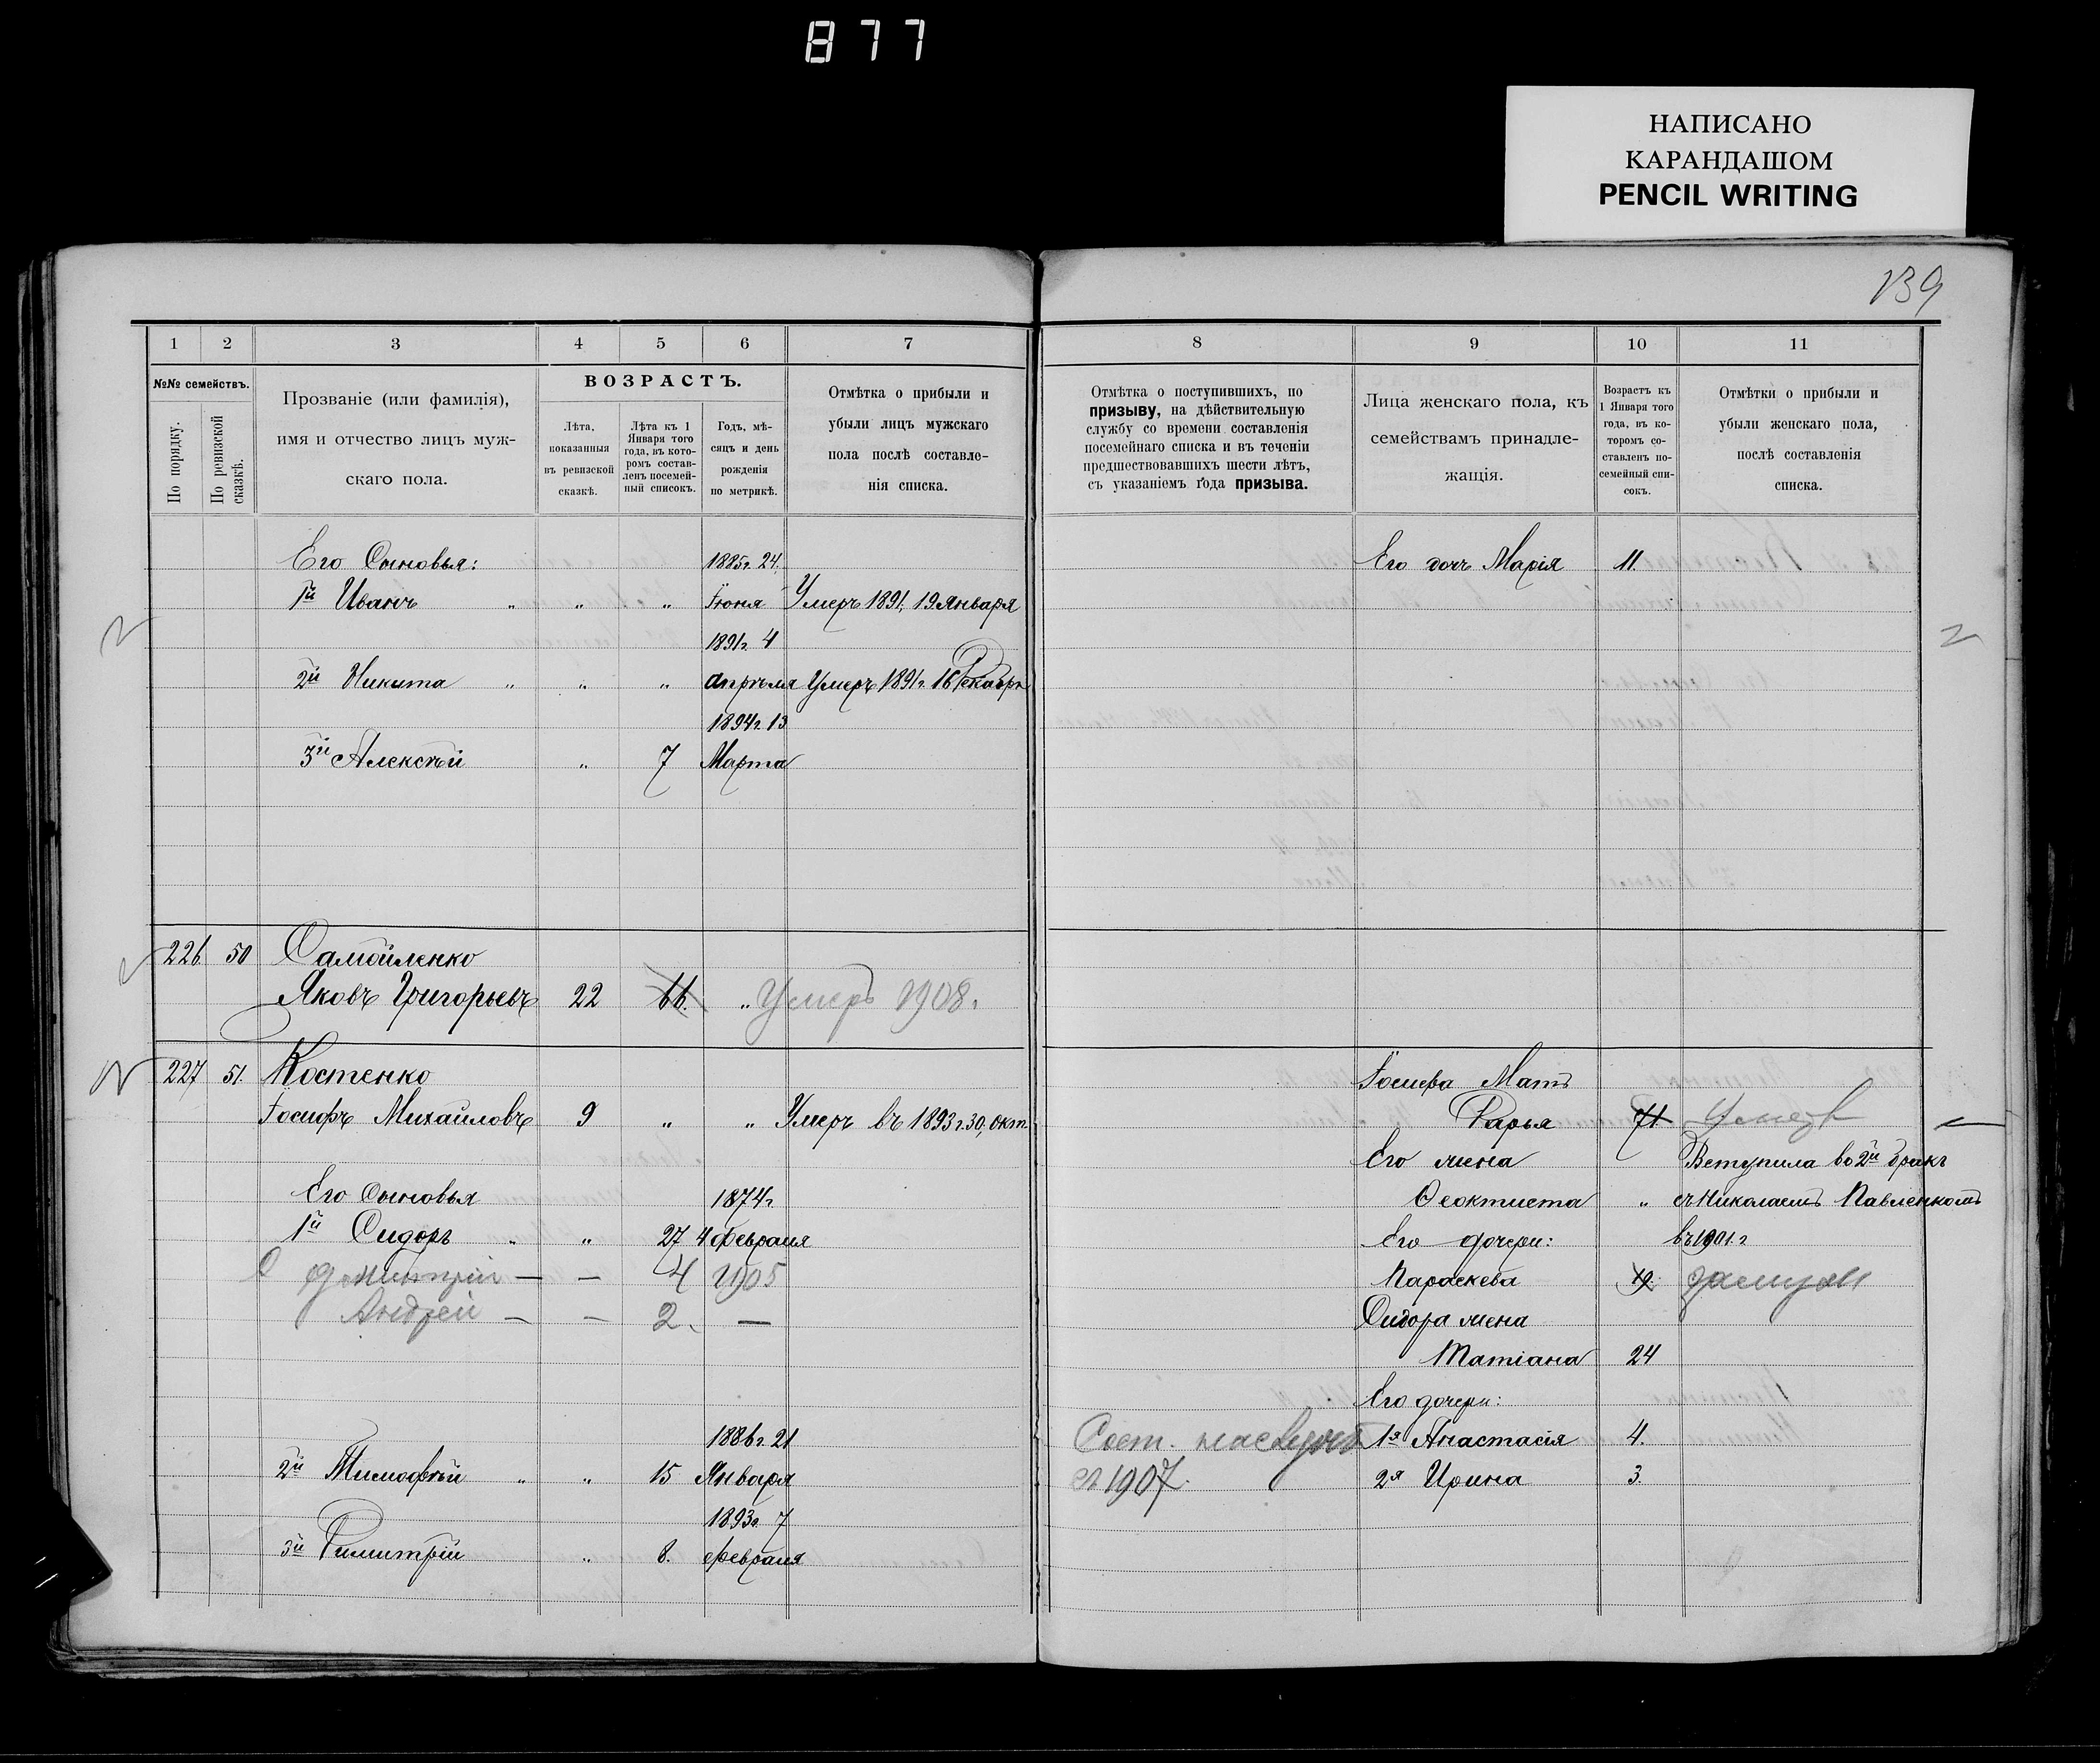 877
НАПИСАНО
КАРАНДАШОМ
PENCIL WRITING
139
1 2 3 4 5 6 7
№№ семействъ.
По порядку.
По ревизской сказкѣ.
Прозваніе (или фамилія),
имя и отчество лицъ муж-
скаго пола.
ВОЗРАСТЪ.
Лѣта,
показанныя
въ ревизской
сказкѣ.
Лѣта къ 1
Января того
года, въ кото-
ромъ состав-
ленъ посемей-
ный списокъ.
Годъ, мѣ-
сяцъ и день
рожденія
по метрикѣ.
Отмѣтка о прибыли и
убыли лицъ мужскаго
пола послѣ составле-
нія списка.
8 9 10 11
Отмѣтка о поступившихъ, по
призыву, на дѣйствительную
службу со времени составленія
посемейнаго списка и въ теченіи
предшествовавшихъ шести лѣтъ,
съ указаніемъ года призыва.
Лица женскаго пола, къ
семействамъ принадле-
жащія.
Возрастъ къ
1 Января того
года, въ ко-
торомъ со-
ставленъ по-
семейный спи-
сокъ.
Отмѣтки о прибыли и
убыли женскаго пола,
послѣ составленія
списка.
Его Сыновья: 1885г. 24
1й Иванъ " " " Іюня Умеръ 1891, 19 Января
1891г. 4
2й Никита " " " апрѣля Умеръ 1891г. 16 Декабря
1894г. 13
3й Алексѣй " 7 Марта
226 50 Самойленко
Яковъ Григорьевъ 22 66. " Умеръ 1908.
227 51. Костенко
Іосифъ Михайловъ 9 " " Умеръ въ 1893г. 30, окт.
Его Сыновья 1874г.
1й Сидоръ " " 27 4 февраля
Дмитрій — — 4 1905
Андрей — — 2. —
1886г. 21
2й Тимофѣй " " 15 Января
1893г. 7
3й Димитрій " 8. февраля
Его дочь Марія 11.
Іосифа Мать
Дарья 71 Умер
Его жена Вступила во 2й бракъ
Феоктиста " съ Николаемъ Павленкомъ
Его дочери: въ 1901.г
Параскева 19. замужем
Сидора жена
Матіана 24
Его дочери:
Сост. на служб 1я Анастасія 4.
съ 1907. 2я Ирина 3.